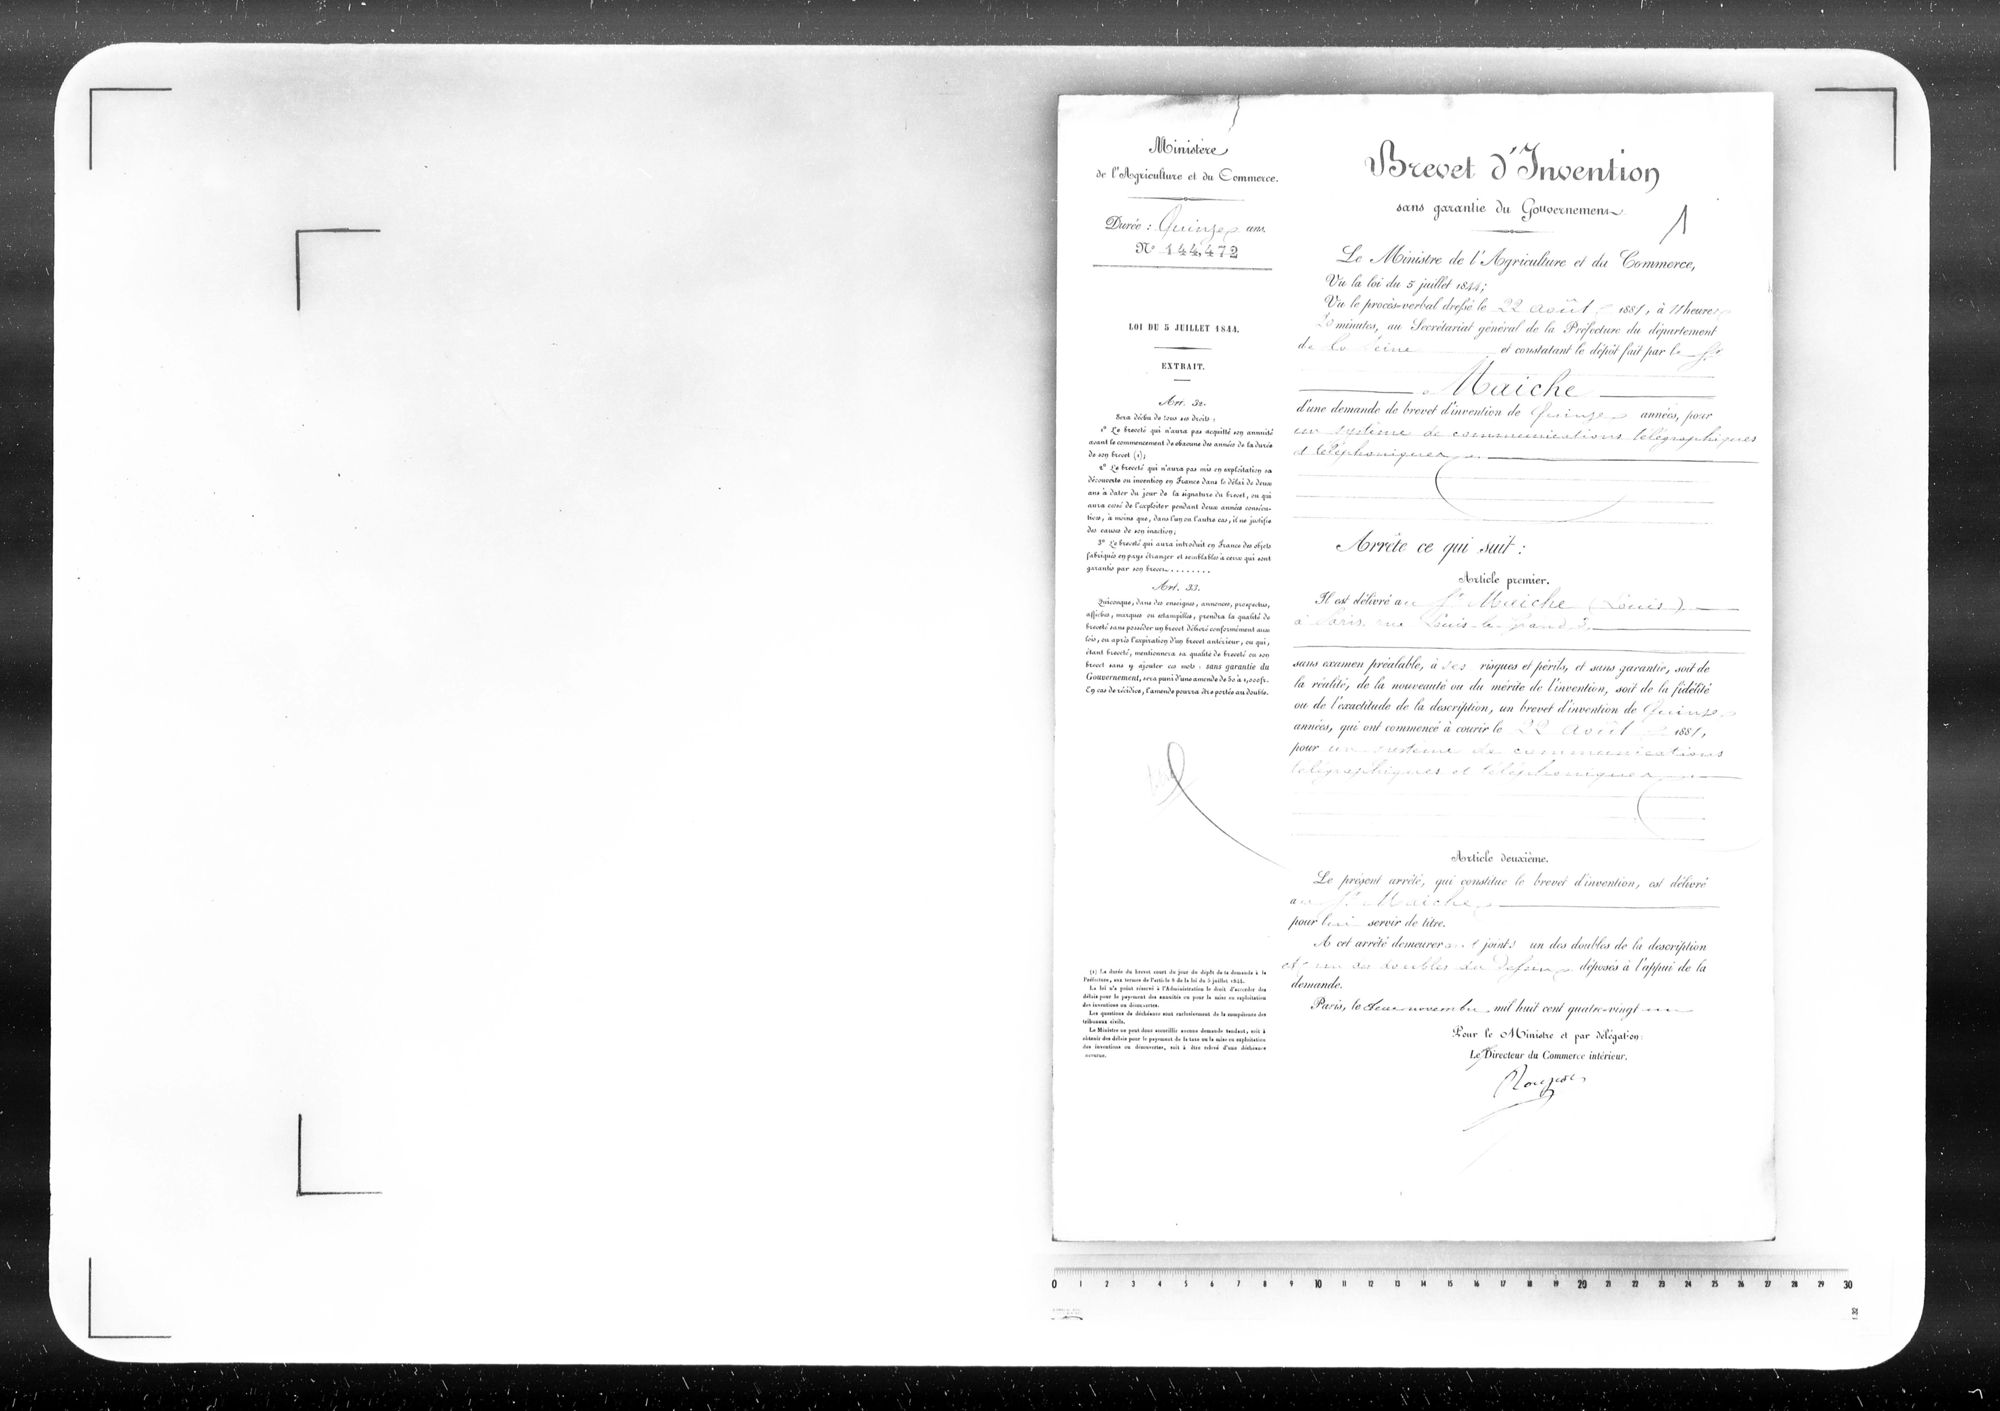 Ministère
de l'Agriculture et du Commerce.
Durée : Quinze ans.
N° 144,472
LOI DU 5 JUILLET 1844.
EXTRAIT.
Art. 32.
Sera déchu de tous ses droits :
1° Le breveté qui n'aura pas acquitté son annuité
avant le commencement de chacune des années de la durée
de son brevet (1);
2° Le breveté qui n'aura pas mis en exploitation sa
découverte ou invention en France dans le délai de deux
ans à dater du jour de la signature du brevet, ou qui
aura cessé de l'exploiter pendant deux années consécu-
tives, à moins que, dans l'un ou l'autre cas, il ne justifie
des causes de son inaction;
3° Le breveté qui aura introduit en France des objets
fabriqués en pays étranger et semblables à ceux qui sont
garantis par son brevet........
Art. 33.
Quiconque, dans des enseignes, annonces, prospectus,
affiches, marques ou estampilles, prendra la qualité de
breveté sans posséder un brevet délivré conformément aux
lois, ou après l'expiration d'un brevet antérieur, ou qui,
étant breveté, mentionnera sa qualité de breveté ou son
brevet sans y ajouter ces mots : sans garantie du
Gouvernement, sera puni d'une amende de 50 à 1,000 fr.
En cas de récidive, l'amende pourra être portée au double.
(1) La durée du brevet court du jour du dépôt de la demande à la
Préfecture, aux termes de l'article 8 de la loi du 5 juillet 1844.
La loi n'a point réservé à l'Administration le droit d'accorder des
délais pour le payement des annuités ou pour la mise en exploitation
des inventions ou découvertes.
Les questions de déchéance sont exclusivement de la compétence des
tribunaux civils.
Le Ministre ne peut donc accueillir aucune demande tendant, soit à
obtenir des délais pour le payement de la taxe ou la mise en exploitation
des inventions ou découvertes, soit à être relevé d'une déchéance
encourue.
Brevet d'Invention
sans garantie du Gouvernement
1
Le Ministre de l'Agriculture et du Commerce,
Vu la loi du 5 juillet 1844;
Vu le procès-verbal dressé le 22 août 1881, à 11 heures
20 minutes, au Secrétariat général de la Préfecture du département
de la Seine et constatant le dépôt fait par le Sr
Maiche
d'une demande de brevet d'invention de Quinze années, pour
un système de communications télégraphiques
et téléphoniques
Arrête ce qui suit :
Article premier.
Il est délivré au Sr Maiche (Louis)
à Paris, rue Louis-le-grand 3
sans examen préalable, à ses risques et périls, et sans garantie, soit de
la réalité, de la nouveauté ou du mérite de l'invention, soit de la fidélité
ou de l'exactitude de la description, un brevet d'invention de Quinze
années, qui ont commencé à courir le 22 août 1881,
pour un système de communications
télégraphiques et téléphoniques
Article deuxième.
Le présent arrêté, qui constitue le brevet d'invention, est délivré
au Sr Maiche
pour lui servir de titre.
A cet arrêté demeureront joints un des doubles de la description
et un des doubles du dessin déposés à l'appui de la
demande.
Paris, le deux novembre mil huit cent quatre-vingt un
Pour le Ministre et par délégation:
Le Directeur du Commerce intérieur.
0 1 2 3 4 5 6 7 8 9 10 11 12 13 14 15 16 17 18 19 20 21 22 23 24 25 26 27 28 29 30